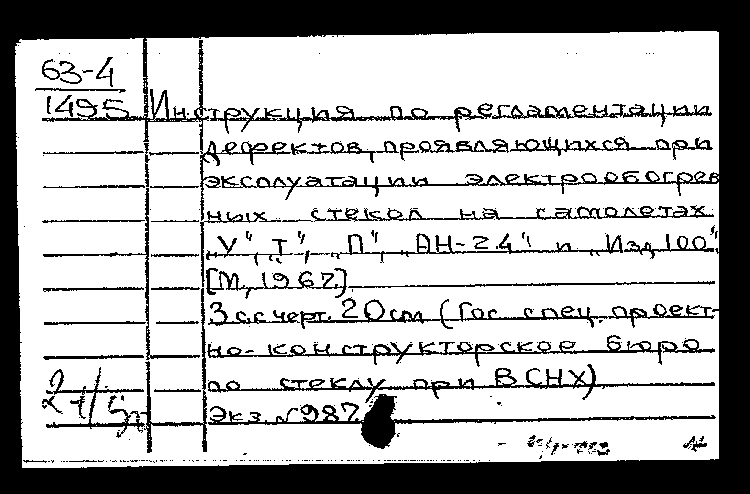 63-4
1495 Инструкция по регламентации
дефектов, проявляющихся при
эксплуатации электрообогрев
ных стекол на самолетах
„У", „Т", „П", „АН-24" и „Изд. 100".
[М., 1967.]
3 с.с черт. 20 см (Гос. спец. проект-
но-конструкторское бюро
по стеклу при ВСНХ)
Экз. №987